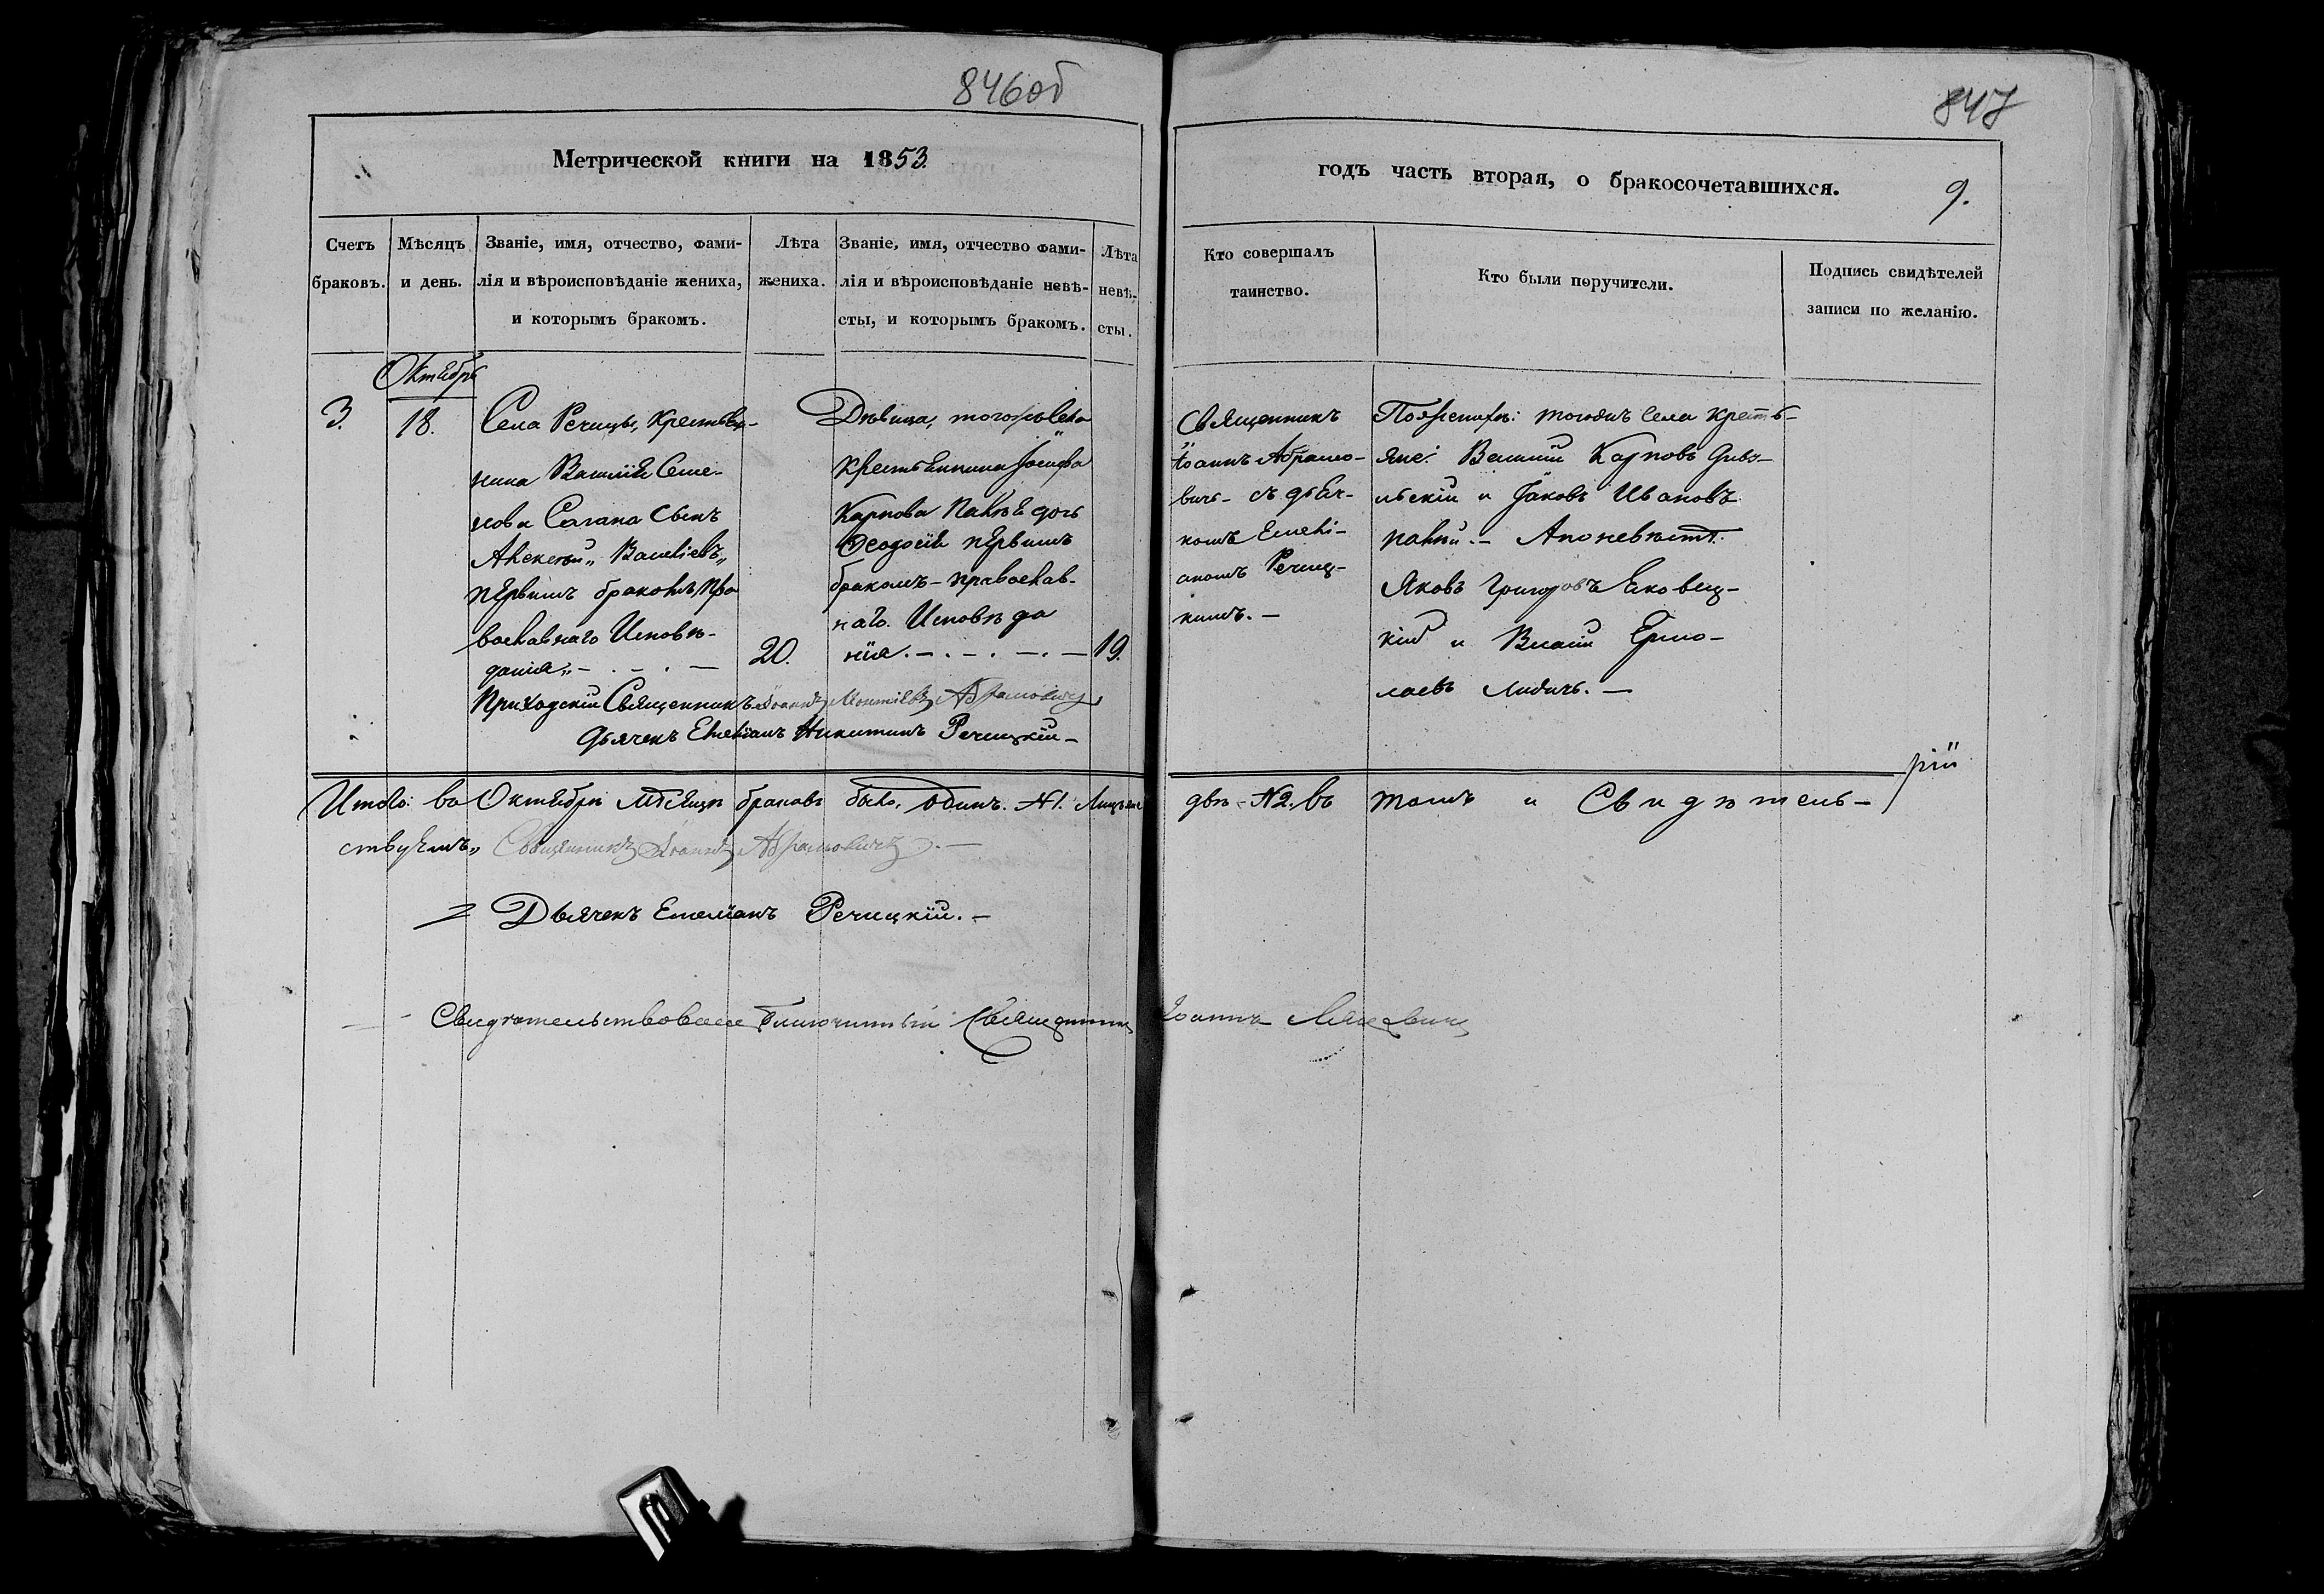 846об
847
Метрической книги на 1853.
годъ часть вторая, о бракосочетавшихся.
9.
Счетъ браковъ.
Мѣсяцъ и день.
Званіе, имя, отчество, фами-
лія и вѣроисповѣданіе жениха,
и которымъ бракомъ.
Лѣта
жениха.
Званіе, имя, отчество фами-
лія и вѣроисповѣданіе невѣ-
сты, и которымъ бракомъ.
Лѣта
невѣ-
сты.
Кто совершалъ
таинство.
Кто были поручители.
Подпись свидѣтелей
записи по желанію.
Октябрь
3.
18.
Села Речицы, крестья-
нина Василія Семе-
нова Сагана сынъ
Алексѣй „ Василіевъ „
первымъ бракомъ, пра
вославнаго Исповѣ-
данія „ —
20.
Дѣвица, тогожъ села
крестьянина Іосифа
Карпова дочь
Ѳеодосія первымъ
бракомъ — православ-
наго Исповѣда
нія. —
19.
Священникъ
Іоаннъ Абрамо-
вичъ — съ дьяч-
комъ Емелі-
аномъ Речиц-
кимъ. —
села кресть-
яне: Василій Карповъ
и Іаковъ Ивановъ
По невѣстѣ.
Яковъ Григоровъ
кій и Василій Ермо-
лаевъ —
Приходскій Священникъ Іоаннъ Абрамовичъ
Дьячекъ Емеліанъ Никитинъ Речицкій —
Итого: въ Октябрѣ мѣсяцѣ браковъ было, одинъ. №1. двѣ №2. въ томъ и Свидѣтель-
ствуемъ „ Священникъ Іоаннъ Абрамовичъ. —
Дьячекъ Емеліанъ Речицкій. —
Свидѣтельствовалъ Благочинный Священникъ Іоаннъ